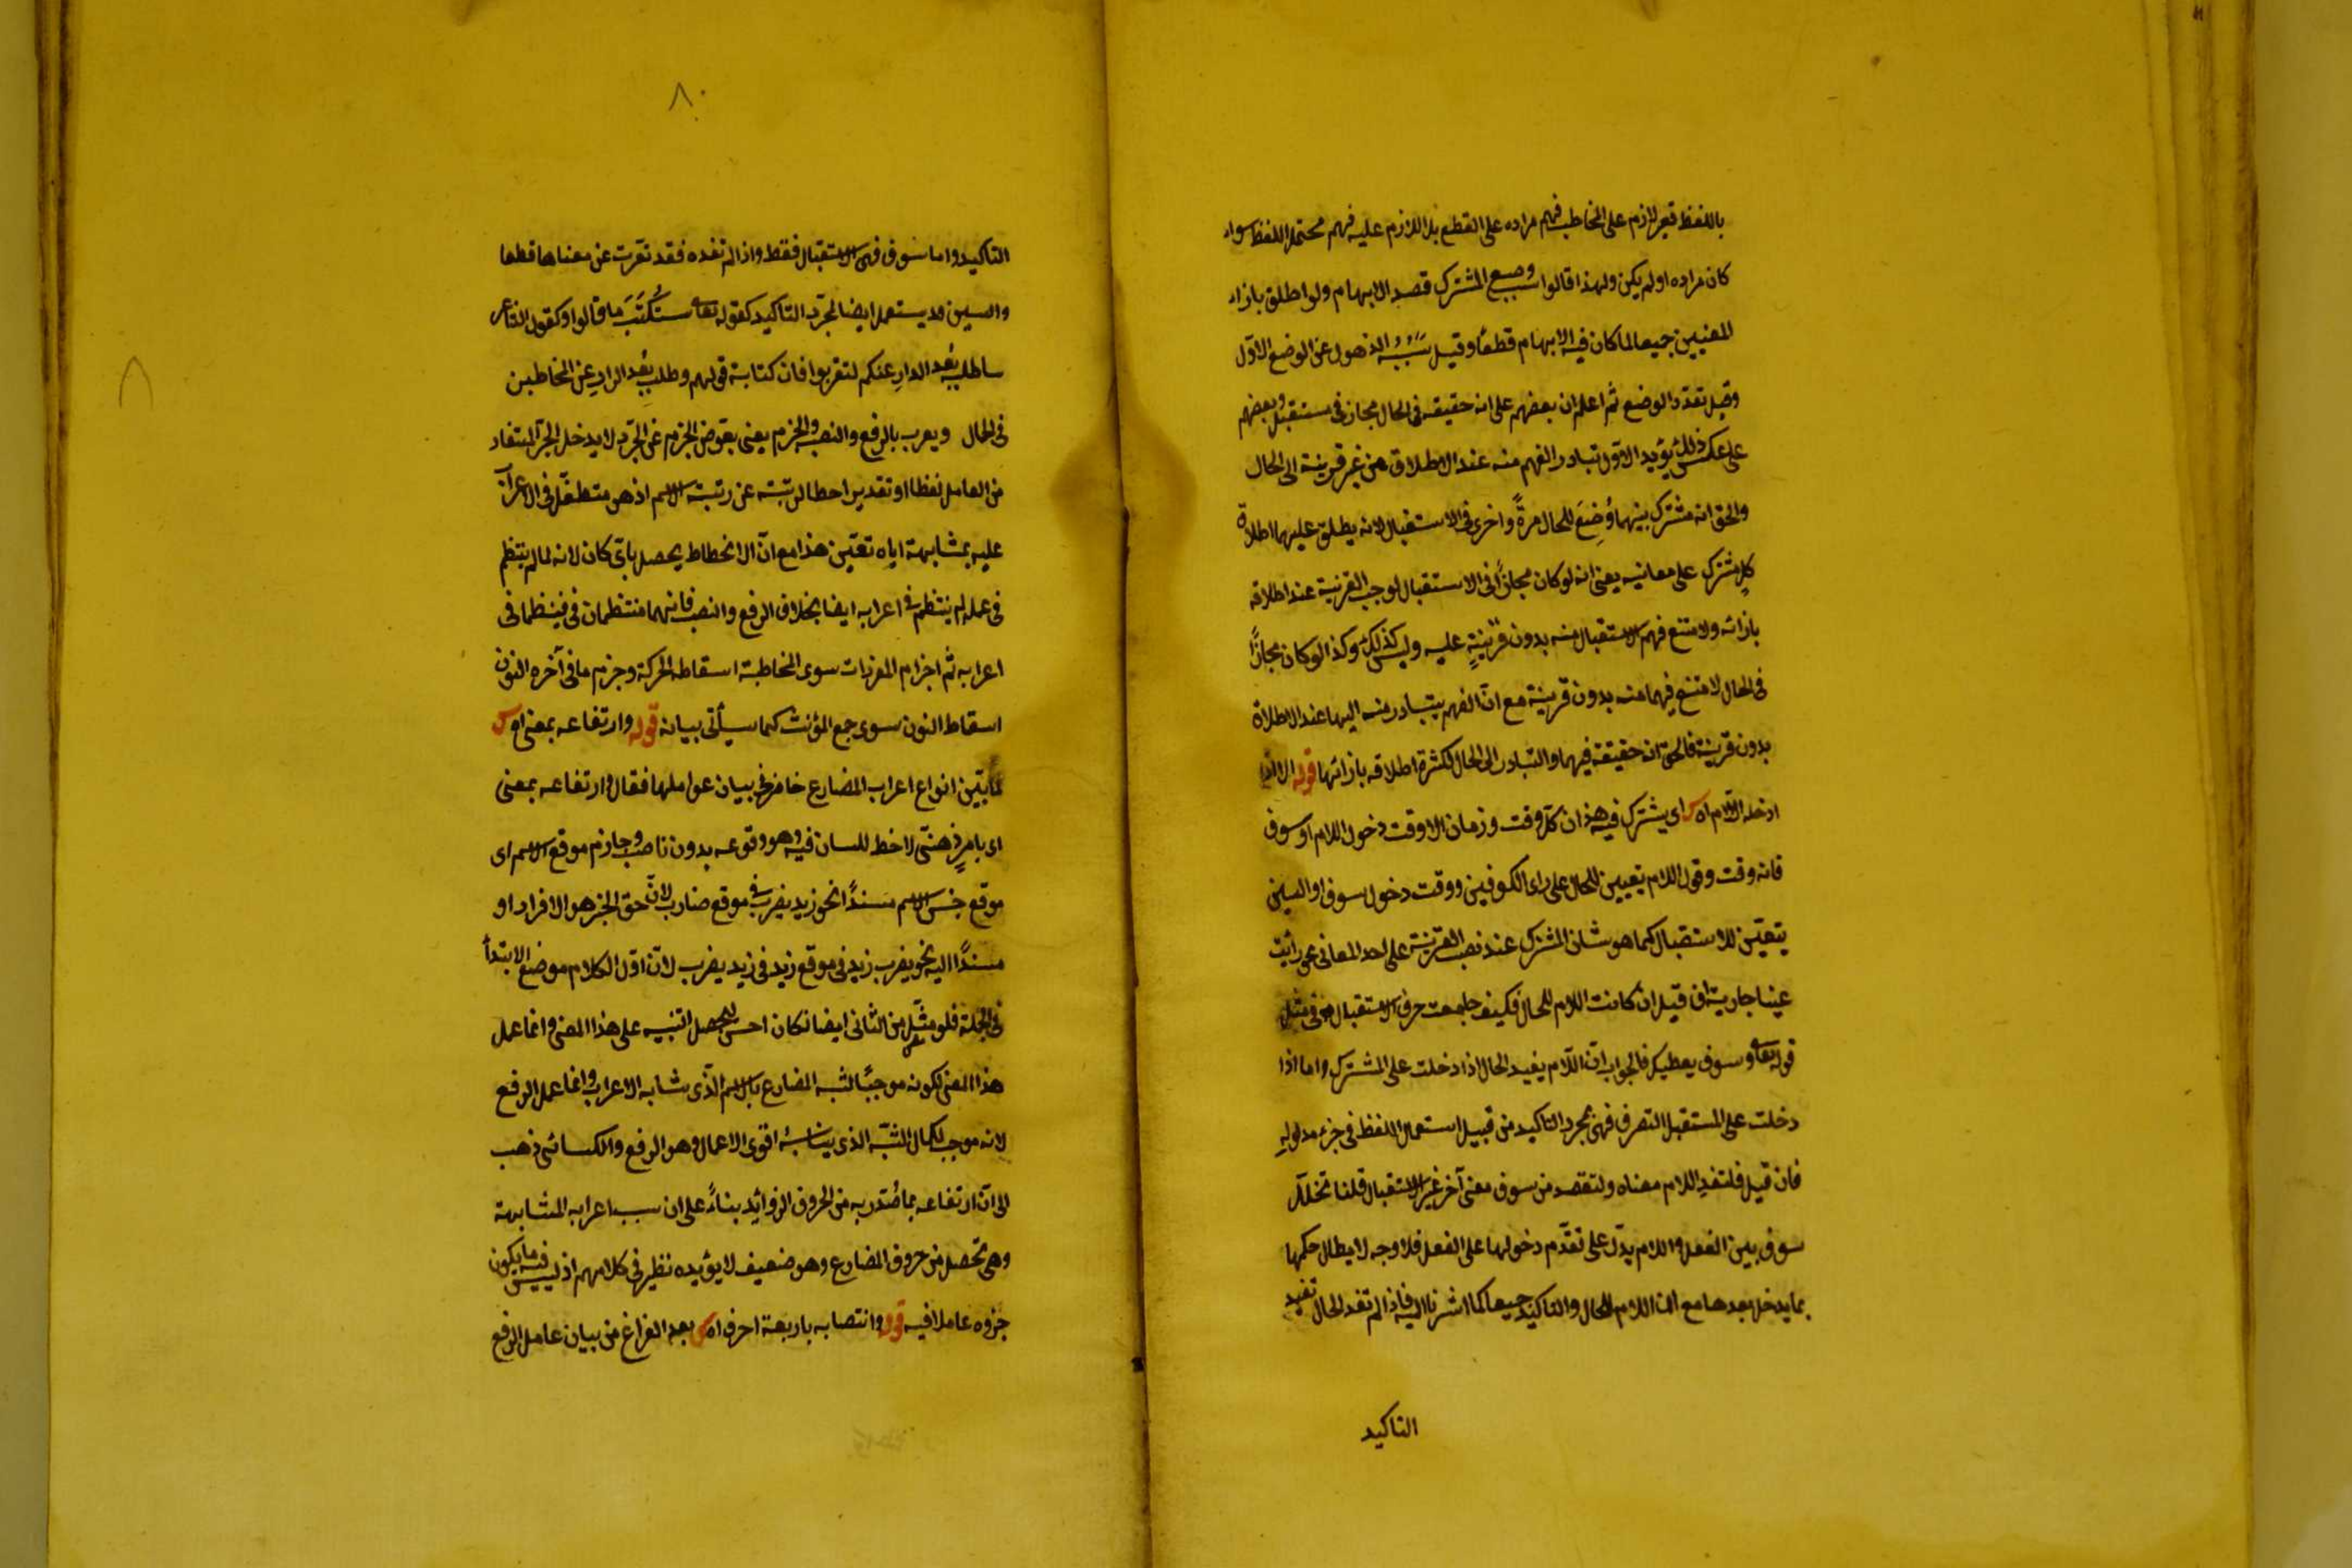 باللفظ قيل لازم على المخاطب فهم مراده على القطع بل اللازم عليه فهم محتمل اللفظ سواء
كان مراده او لم يكن ولهذا قالوا سبب وضع المشترك قصد الابهام ولو اطلق بازاء
المعنيين جميعا لما كان فيه الابهام قطعًا وقيل سَبَبُه الذهول عن الوضع الاوّل
وقيل تعدّد الوضع ثم اعلم ان بعضهم على انه حقيقة فى الحال مجاز فى مستقبل وبعضهم
على عكس ذلك يؤيد الاوّل تبادر الفهم منه عند الاطلاق من غير قرينة الى الحال
والحق انه مشترك بينهما وُضِعَ للحال مرةً واخرى فى الاستقبال لانه يطلق عليهما اطلاق
كل مشترك على معانيه يعنى انه لو كان مجازًا فى الاستقبال لوجب القرينة عند اطلاقه
بازائه ولامتنع فهم الاستقبال منه بدون قرينةٍ عليه وليس كذلك وكذا لو كان مجازًا
فى الحال لامتنع فيهما منه بدون قرينة مع انّ الفهم يتبادر منه اليها عند الاطلاق
بدون قرينة فالحق انه حقيقة فيهما والتبادر الى الحال لكثرة اطلاقه بازائها قوله الا اذا
ادخله اللام اه اى يشترك فيه هذان كل وقت وزمان الا وقت دخول اللام او سوف
فانه وقت وقوع اللام يتعيين للحال على راى الكوفيين ووقت دخول سوف او السين
يتعيّن للاستقبال كما هو شان المشترك عند نصب القرينة على احد المعانى نحو رائيت
عينا جارية فان قيل ان كانت اللام للحال فكيف جامعت حرف الاستقبال فى مثل
قوله تعالى وسوف يعطيك فالجواب انّ اللام يفيد الحال اذا دخلت على المشترك واما اذا
دخلت على المستقبل الصرف فهى لمجرد التاكيد من قبيل استعمال اللفظ فى جزء مدلولهِ
فان قيل فلتفد اللام معناه ولتقصد من سوف معنى آخر غير الاستقبال قلنا تخلل
سوف بين الفعل واللام يدلّ على تقدّم دخولها على الفعل فلا وجه لابطال حكمها
بما يدخل بعدها مع ان اللام للحال والتاكيد جميعا كما اشرنا اليه فاذا لم تفد الحال تفيد
التاكيد
٨٠
التاكيد واما سوف فهى للاستقبال فقط واذا لم تفده فقد تعرّت عن معناها قطعا
والسين قد يستعمل ايضا لمجرّد التاكيد كقوله تعالى سنُكتَبَ ما قالوا وكقول الشاعر
ساطلب بُعد الدارِ عنكم لتقربوا فان كتابة قولهم وطلب بُعد الدارِ عن المخاطبين
فى الحال ويعرب بالرفع والنصب والجزم يعنى بعوض الجزم عن الجرّ لا يدخل الجرّ المستفاد
من العامل لفظا او تقديرا حطا لرتبته عن رتبة الاسم اذ هو متطفّل فى الاعراب
عليه بمشابهة اياه تعيّن هذا مع انّ الانحطاط يحصل بايّ كان لانه لما لم ينتظم
فى عمله لم ينتظم فى اعرابه ايضا بخلاف الرفع والنصب فانهما منتظمان فى فينظما فى
اعرابه ثم اجزام المفردات سوى المخاطبة اسقاط الحركة وجزم ما فى آخره النون
اسقاط النون سوى جمع المؤنث كما سيأتى بيانه قوله وارتفاعه بمعنى اه
لما بيّن انواع اعراب المضارع خاض فى بيان عواملها فقال وارتفاعه بمعنى
اى بامرٍ ذهنىّ لا خط للسان فيه وهو وقوعه بدون ناصب وجازم موقع الاسم اى
موقع جنس الاسم مسندًا نحو زيد يضرب فى موقع ضارب لانّ حق الخبر هو الافراد او
مسندًا اليه نحو يضرب زيد فى موقع زيد فى زيد يضرب لانّ اوّل الكلام موضع الابتدأ
فى الجملة فلو مثّل من الثانى ايضا لكان احسن ليحصل التنبيه على هذا المعنى وانما عمل
هذا المعنى لكونه موجبًا لشبه المضارع بالاسم الّذى شابه الاعراب وانما عمل الرفع
لانه موجب لكمال الشبّه الذى يناسبُه اقوى الاعمال وهو الرفع والكسائى ذهب
الى انّ ارتفاعه بما صُدّر به من الحروف الزوائد بناءً على ان سبب اعرابه المشابهة
وهى تحصل من حروف المضارع وهو ضعيف لا يؤيده نظير فى كلامهم اذ ليس فيه ما يكون
جزوه عاملا فيه قوله وانتصابه باربعة احرف اه بعد الفراغ من بيان عامل الرفع